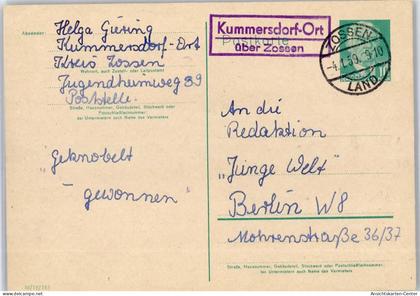 Absender:
Helga Güring
Kummersdorf-Ort
Kreis Zossen
Wohnort, auch Zustell- oder Leitpostamt
Jugendheimweg 39
Poststelle
Straße, Hausnummer, Gebäudeteil, Stockwerk oder
Postschließfachnummer;
bei Untermietern auch Name des Vermieters
"Geknobelt
– gewonnen"
Kummersdorf-Ort
über Zossen
Postkarte
ZOSSEN
9-10
LAND
An die
Redaktion
"Junge Welt"
Berlin W8
Mohrenstraße 36/37
Straße, Hausnummer, Gebäudeteil, Stockwerk oder Postschließfachnummer;
bei Untermietern auch Name des Vermieters
Ansichtskarten-Center